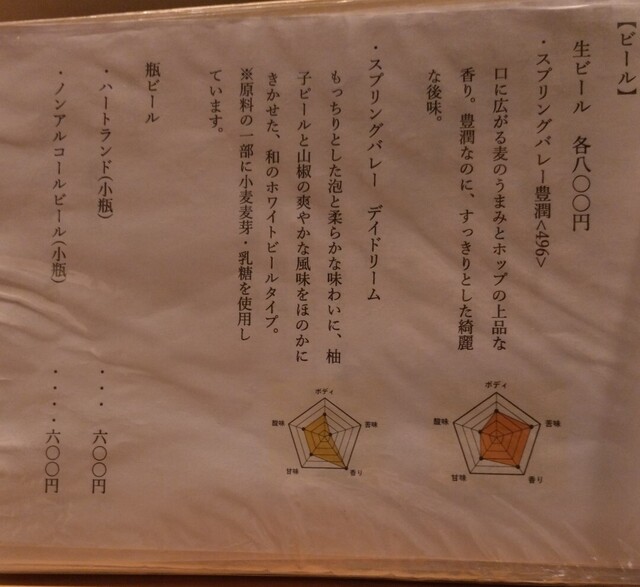 【ビール】
生ビール　各八〇〇円
・スプリングバレー豊潤<496>
口に広がる麦のうまみとホップの上品な
香り。豊潤なのに、すっきりとした綺麗
な後味。
ボディ
苦味
香り
甘味
酸味
・スプリングバレー　デイドリーム
もっちりとした泡と柔らかな味わいに、柚
子ピールと山椒の爽やかな風味をほのかに
きかせた、和のホワイトビールタイプ。
※原料の一部に小麦麦芽・乳糖を使用し
ています。
ボディ
苦味
香り
甘味
酸味
瓶ビール
・ハートランド(小瓶)　・・・　六〇〇円
・ノンアルコールビール(小瓶)　・・・・六〇〇円